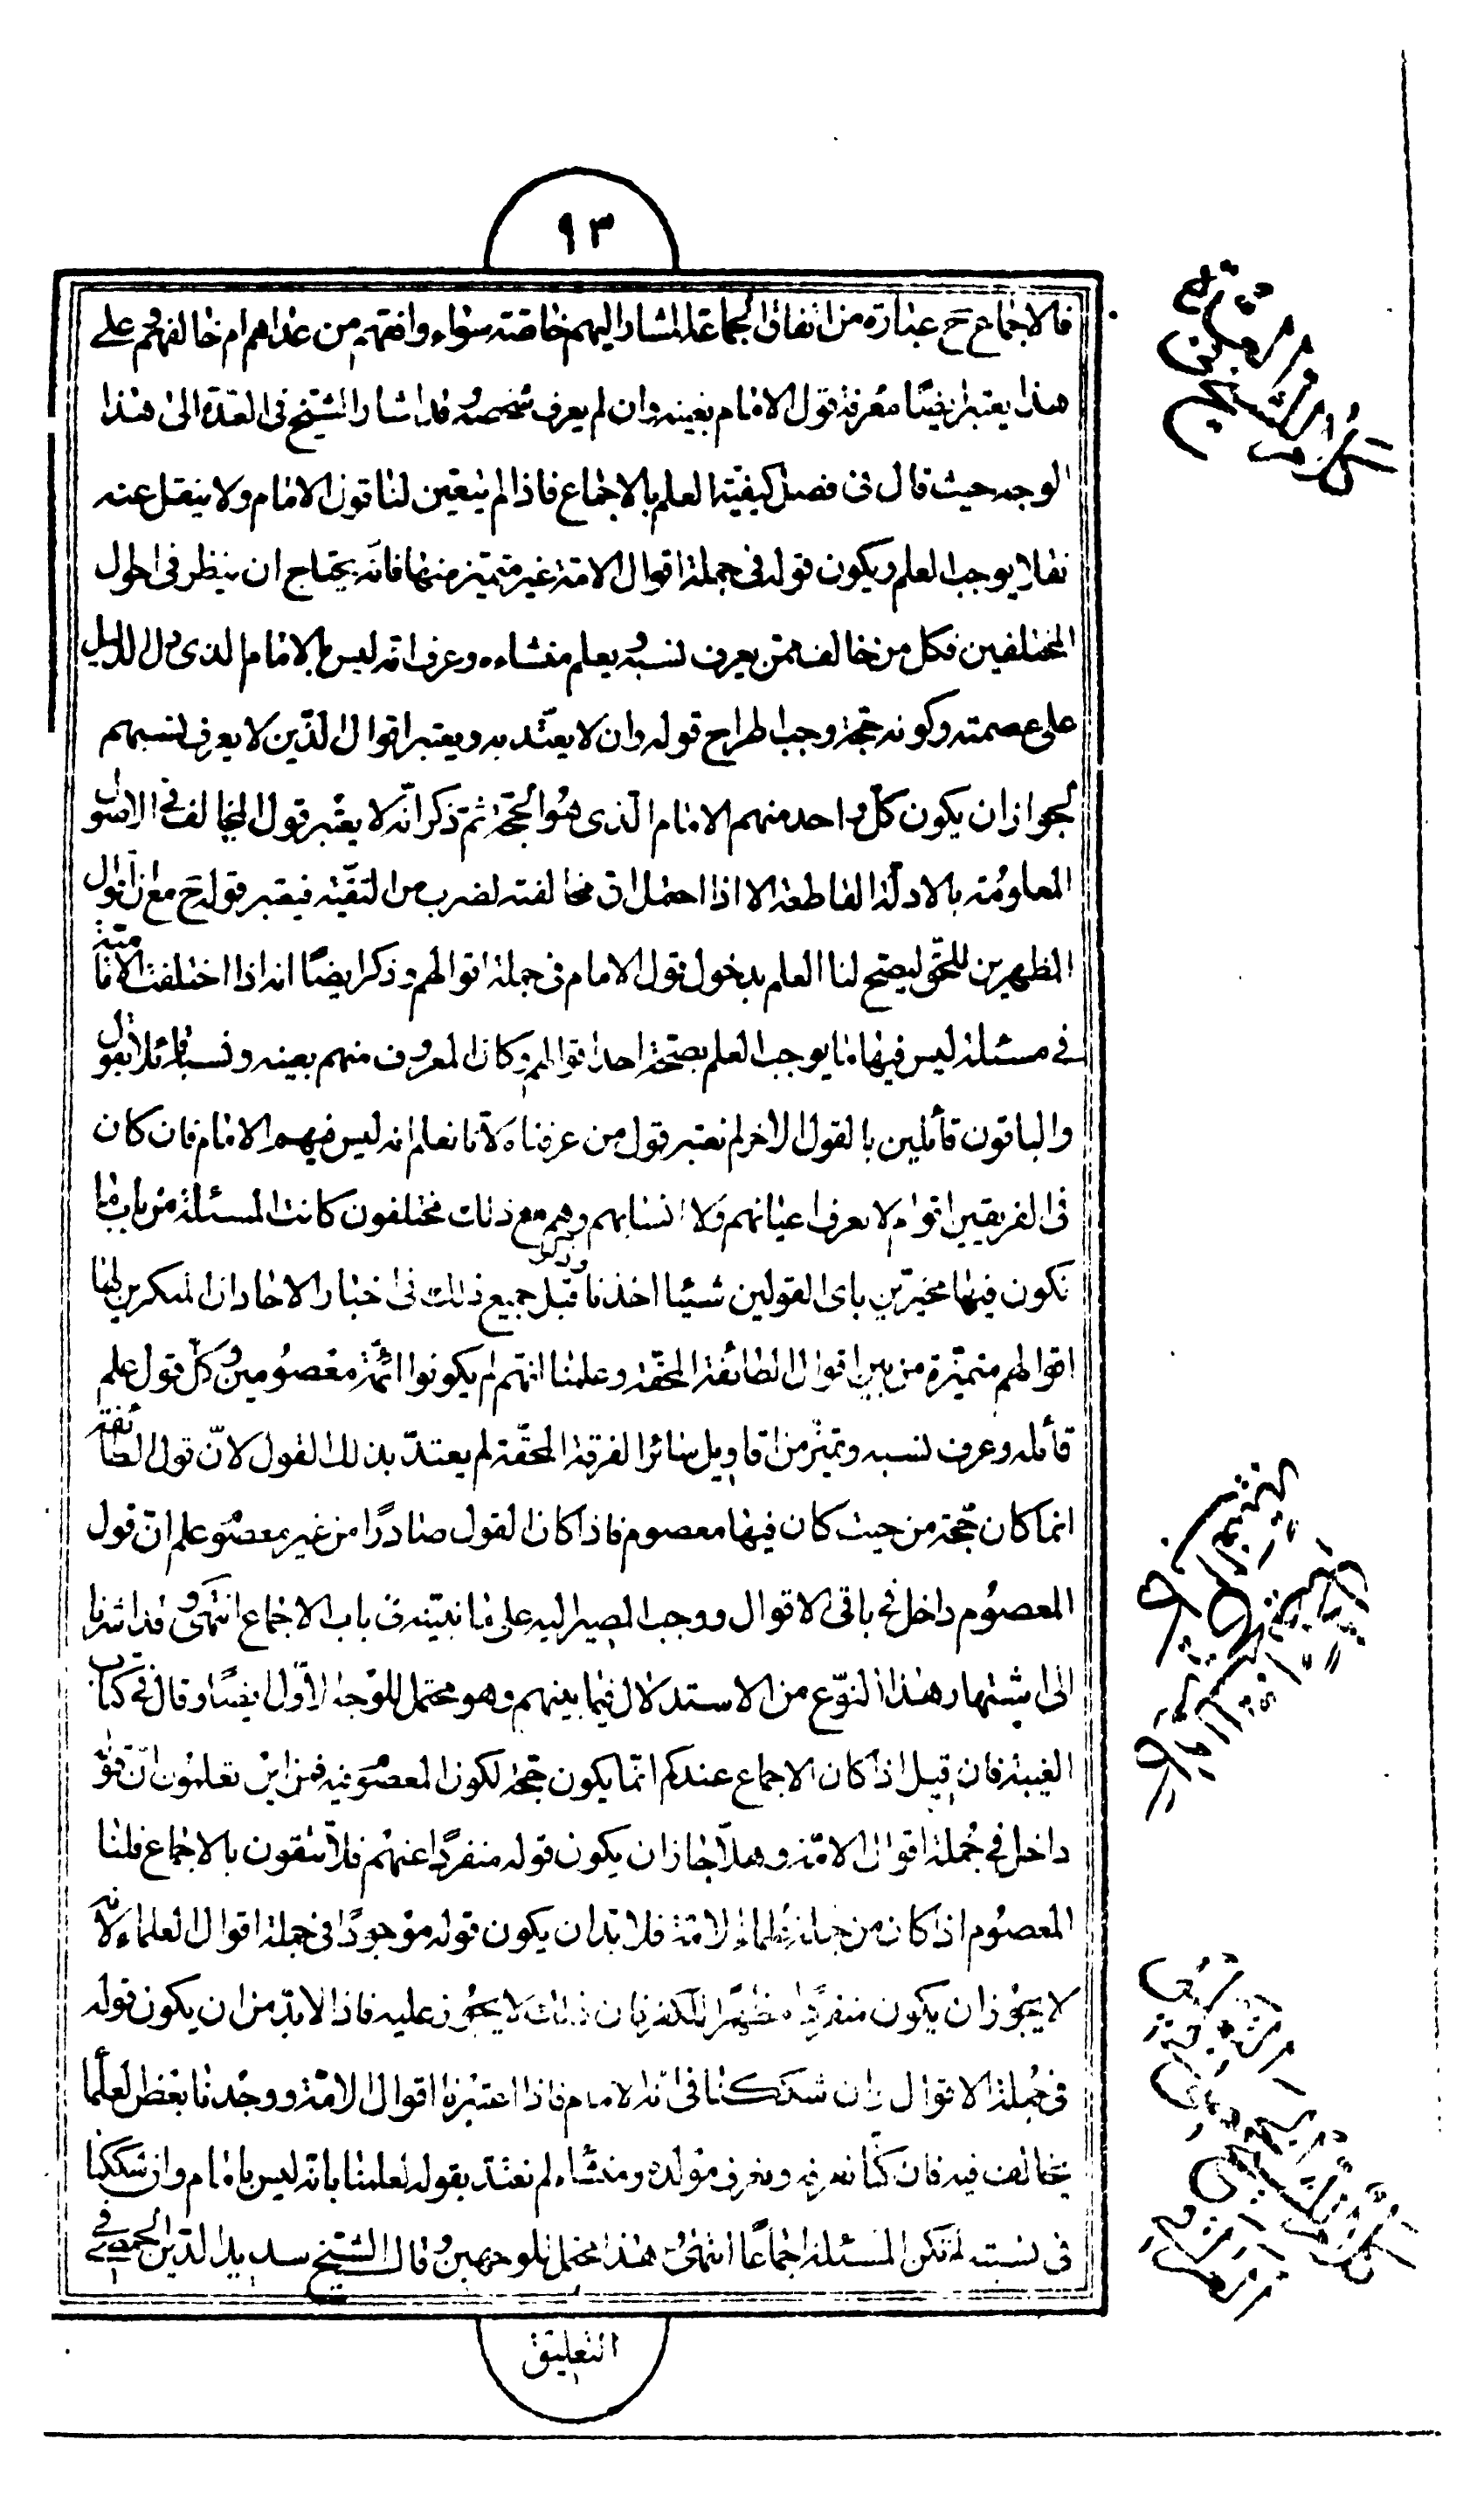 ٩٣
فالاجماع ح عبارة من اتفاق الجماعة المشار اليهم خاصّة سواء وافقهم من عداهم ام خالفهم وعلى
هذا يعتبر ايضًا معرفة قول الامام بعينه وان لم يعرف شخصه وقد اشار الشيخ فى العدّة الى هذا
الوجه حيث قال فى فصل كيفيّة العلم بالاجماع فاذا لم يتعين لنا قول الامام ولا ينقل عنه
نقلا يوجب العلم ويكون قوله فى جملة اقوال الامّة غير متميّز منها فانّه يحتاج ان ينظر فى احوال
المختلفين فكل من خالف ممّن يعرف نسبه ويعلم منشاءه وعرف انّه ليس بالامام الذى دل الدليل
على عصمته وكونه حجّة وجب اطراح قوله وان لا يعتّد به ويعتبر اقوال الّذين لا يعرف نسبهم
لجواز ان يكون كلّ واحد منهم الامام الّذى هو الحجّة ثمّ ذكر انّه لا يعتبر قول المخالف فى الاصول
المعلومة بالادلّة القاطعة الا اذا احتمل ان مخالفته لضرب من التقيّة فيعتبر قوله ح مع اقوال
المظهرين للحّق ليصح لنا العلم بدخول قول الامام فى جملة اقوالهم وذكر ايضًا انه اذا اختلفت الاماميّة
فى مسئلة ليس فيها ما يوجب العلم بصحّة احد اقوالهم وكان المعروف منهم بعينه ونسبه قائلا بقول
والباقون قائلين بالقول الاخر لم نعتبر قول من عرفناه لانّا نعلم انه ليس فيهم الامام فان كان
فى الفريقين اقوام لا يعرف اعيانهم ولا انسابهم وهم مع ذلك مختلفون كانت المسئلة من باب ما
نكون فيها مخيّرين باى القولين شيئا اخذنا وذكر قبل جميع ذلك فى اخبار الاحاد ان المنكرين لها
اقوالهم متميّزة من بين اقوال الطائفة المحقّة وعلمنا انهم لم يكونوا ائمّة معصومين وكلّ قول علم
قائله وعرف نسبه وتميّز من اقاويل سائر الفرقة المحقّة لم يعتدّ بذلك القول لانّ قول الطائفة
انما كان حجّة من حيث كان فيها معصوم فاذا كان القول صادرًا من غير معصوم علم انّ قول
المعصوم داخل فى باقى الاقوال ووجب المصير اليه على ما نبيّنه فى باب الاجماع انتهى وقد اشرنا
الى اشتهار هذا النوّع من الاستدلال فيما بينهم وهو محتمل للوجه الاوّل ايضًا وقال فى كتاب
الغيبة فان قيل اذا كان الاجماع عندكم انّما يكون حجّة لكون المعصوم فيه فمن اين تعلمون انّ قوله
داخل فى جملة اقوال الامّة وهلّا جاز ان يكون قوله منفردًا عنهم فلا تثقون بالاجماع قلنا
المعصوم اذا كان من جملة علماء الامّة فلا بّد ان يكون قوله موجودًا فى جملة اقوال العلماء لانه
لا يجوز ان يكون منفردًا مظهرًا للكفر فان ذلك لا يجوز عليه فاذا لا بدّ من ان يكون قوله
فى جملة الاقوال وان شككنا فى انّه الامام فاذا اعتبرنا اقوال الامّة ووجدنا بعض العلماء
يخالف فيه فان كنّا نعرفه ونعرف مولده ومنشاءه لم نعتدّ بقوله لعلمنا بانّه ليس بامام وان شككنا
فى نسبته لم تكن المسئلة اجماعًا انتهى وهذا محتمل للوجهين وقال الشيخ سديد الدّين الحمصى فى
التعليق